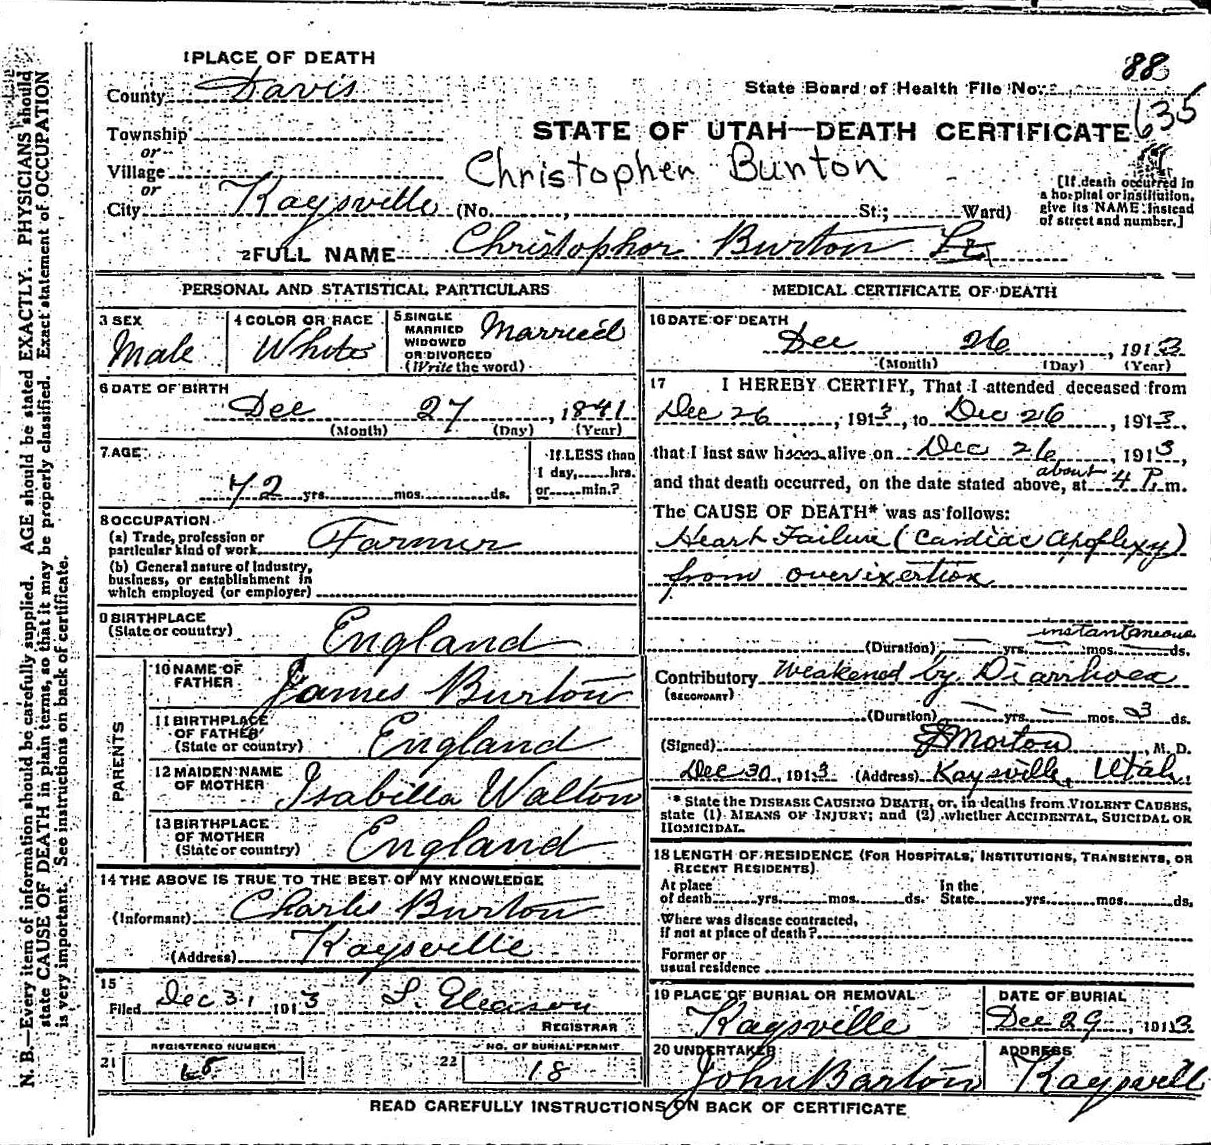 1 PLACE OF DEATH
88
County Davis
State Board of Health File No. 635
Township
or
STATE OF UTAH—DEATH CERTIFICATE
Village
Christopher Burton
or
City Kaysville (No. , St.; Ward)
[If death occurred in a hospital or institution, give its NAME instead of street and number.]
2 FULL NAME Christopher Burton
PERSONAL AND STATISTICAL PARTICULARS
3 SEX
Male
4 COLOR OR RACE
White
5 SINGLE
MARRIED
WIDOWED
OR DIVORCED
(Write the word)
Married
6 DATE OF BIRTH
Dec 27, 1841
(Month) (Day) (Year)
7 AGE
72 yrs. mos. ds.
If LESS than
1 day, hrs.
or min.?
8 OCCUPATION
(a) Trade, profession or
particular kind of work Farmer
(b) General nature of industry,
business, or establishment in
which employed (or employer)
9 BIRTHPLACE
(State or country) England
PARENTS
10 NAME OF
FATHER James Burton
11 BIRTHPLACE
OF FATHER
(State or country) England
12 MAIDEN NAME
OF MOTHER Isabella Walton
13 BIRTHPLACE
OF MOTHER
(State or country) England
14 THE ABOVE IS TRUE TO THE BEST OF MY KNOWLEDGE
(Informant) Charles Burton
(Address) Kaysville
15
Filed Dec 31, 1913 L. Gleason
REGISTRAR
REGISTERED NUMBER
21 68
NO. OF BURIAL PERMIT
22 18
MEDICAL CERTIFICATE OF DEATH
16 DATE OF DEATH
Dec 26, 1913
(Month) (Day) (Year)
17 I HEREBY CERTIFY, That I attended deceased from
Dec 26, 1913, to Dec 26, 1913.
that I last saw him alive on Dec 26, 1913,
about
and that death occurred, on the date stated above, at 4 P. m.
The CAUSE OF DEATH* was as follows:
Heart Failure (Cardiac Apoplexy)
from overixertion
instantaneous
(Duration) — yrs. — mos. ds.
Contributory Weakened by Diarrhoea
(SECONDARY)
(Duration) — yrs. — mos. 3 ds.
(Signed) Morton, M. D.
Dec 30, 1913 (Address) Kaysville, Utah.
* State the DISEASE CAUSING DEATH, or, in deaths from VIOLENT CAUSES,
state (1) MEANS OF INJURY; and (2) whether ACCIDENTAL, SUICIDAL OR
HOMICIDAL.
18 LENGTH OF RESIDENCE (FOR HOSPITALS, INSTITUTIONS, TRANSIENTS, OR
RECENT RESIDENTS)
At place In the
of death yrs. mos. ds. State yrs. mos. ds.
Where was disease contracted,
if not at place of death?
Former or
usual residence
19 PLACE OF BURIAL OR REMOVAL
Kaysville
DATE OF BURIAL
Dec 29, 1913
20 UNDERTAKER
John Barton
ADDRESS
Kaysvill
READ CAREFULLY INSTRUCTIONS ON BACK OF CERTIFICATE
N. B.—Every item of information should be carefully supplied. AGE should be stated EXACTLY. PHYSICIANS should
state CAUSE OF DEATH in plain terms, so that it may be properly classified. Exact statement of OCCUPATION
is very important. See instructions on back of certificate.